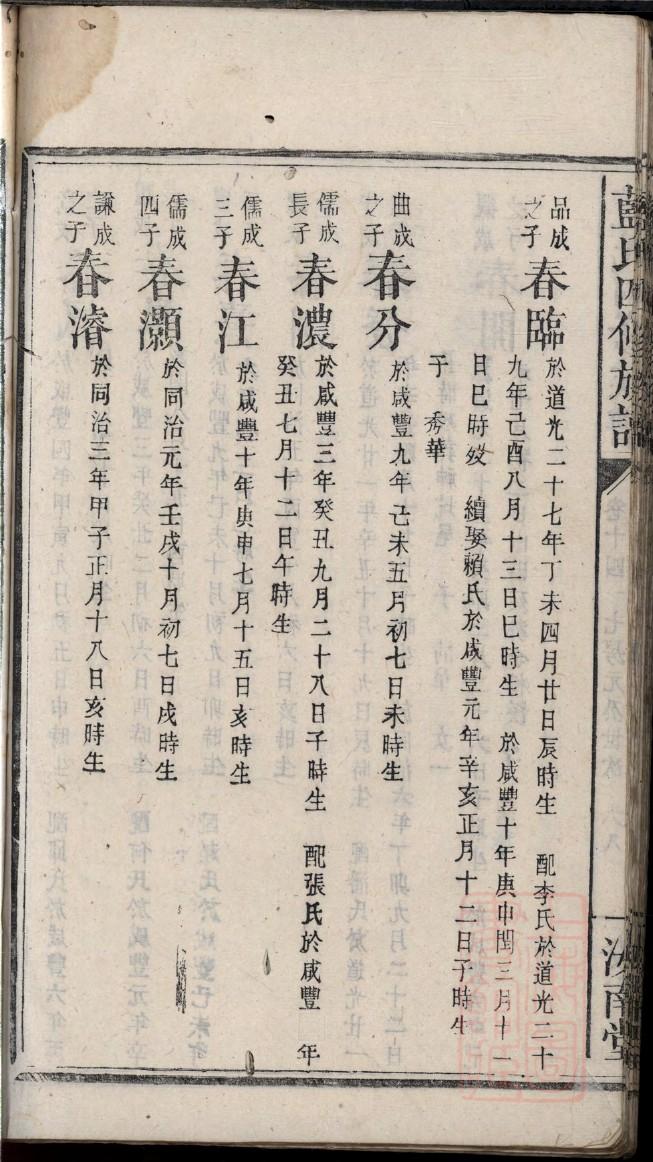 藍氏四修族譜
汝南堂
品成之子
春臨
於道光二十七年丁未四月廿日辰時生 配李氏於道光二十
九年己酉八月十三日巳時生 於咸豐十年庚申閏三月十一
日巳時歿 續娶賴氏於咸豐元年辛亥正月十二日子時生
子 秀華
曲成之子
春分
於咸豐九年己未五月初七日未時生
儒成長子
春濃
於咸豐三年癸丑九月二十八日子時生 配張氏於咸豐 年
癸丑七月十二日午時生
儒成三子
春江
於咸豐十年庚申七月十五日亥時生
儒成四子
春灝
於同治元年壬戌十月初七日戌時生
謙成之子
春濬
於同治三年甲子正月十八日亥時生